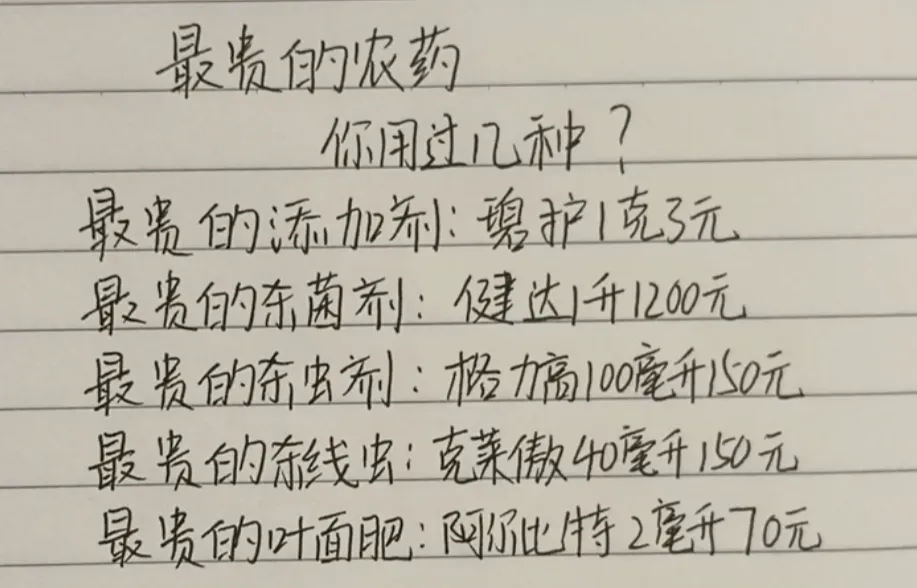 最贵的农药
你用过几种？
最贵的添加剂：碧护1克3元
最贵的杀菌剂：健达1升1200元
最贵的杀虫剂：格力高100毫升150元
最贵的杀线虫：克莱傲40毫升150元
最贵的叶面肥：阿尔比特2毫升70元